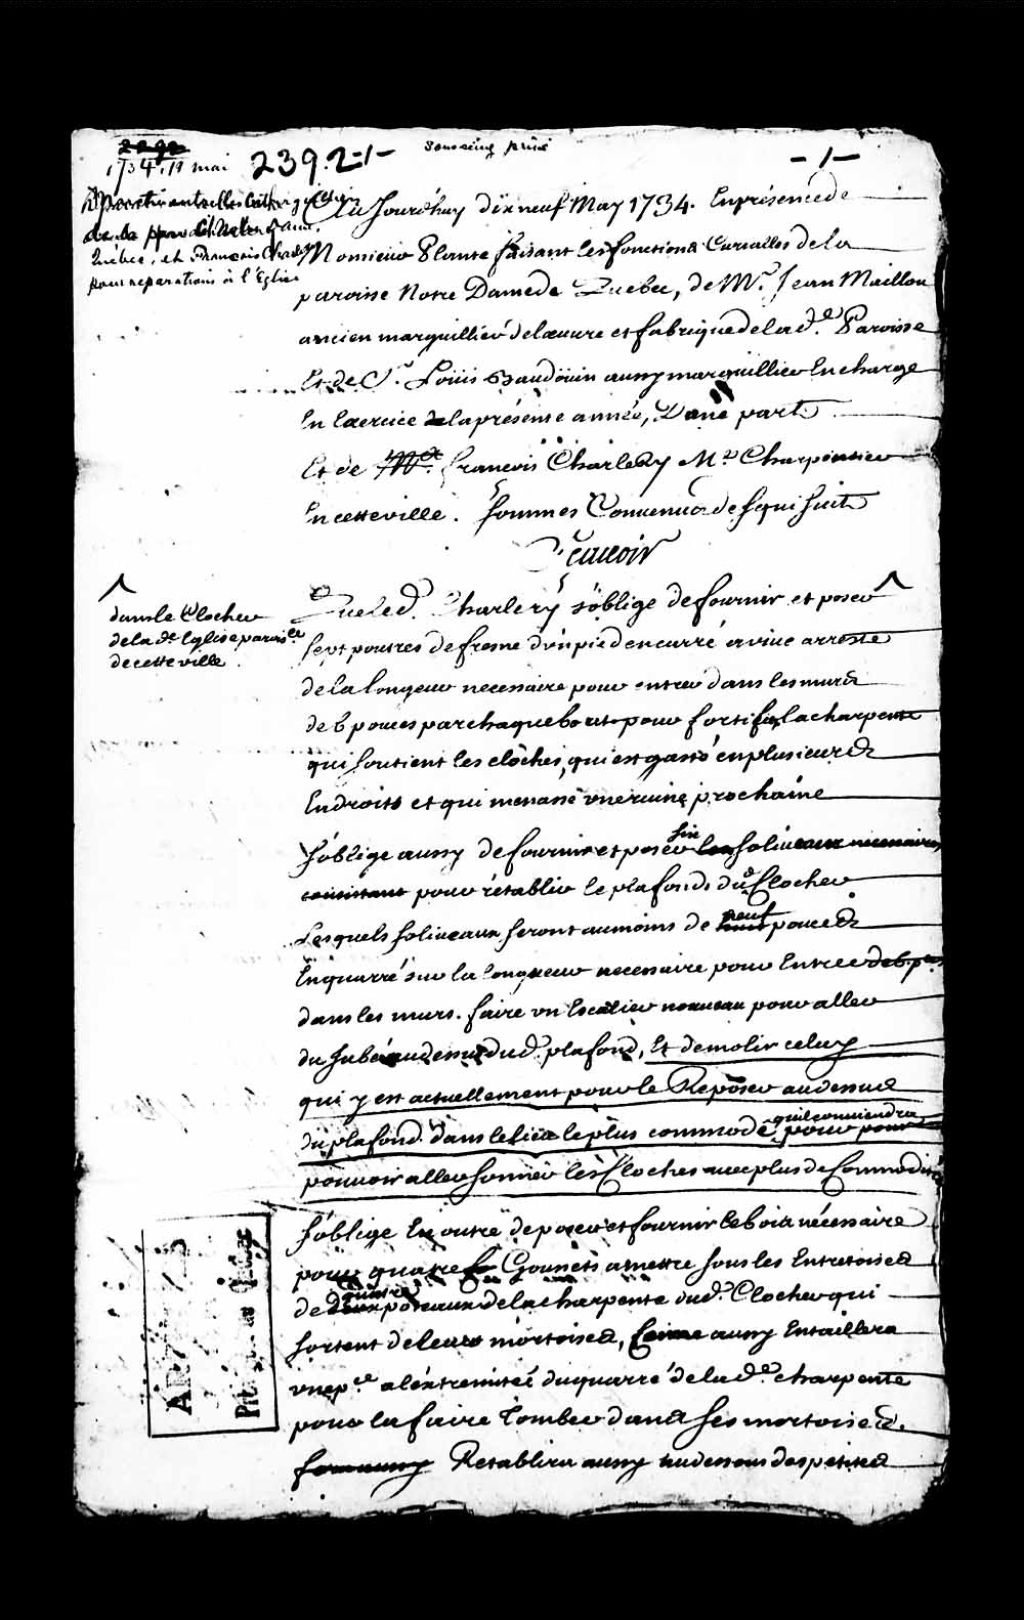 1734. 19 mai
239.2-1-
sous seing privé
-1-
de la
Québec, et François Charlery
pour reparations à l'Eglise
Au Jourd'huy dixneuf May 1734. En présence de
Monsieur Plante faisant les fonctions Curialles de la
paroisse Notre Dame de Quebec, de Mr. Jean Maillou
ancien marguillier de l'œuvre et fabrique de lade. Paroisse
Et de Sr. Loüis Baudoüin aussy marguillier En charge
En Exercice de la présente année, D'une part
Et de François Charlery Me. Charpentier
En cette ville. Sommes Convenus de ce qui suit
Scauoir
Que led. Charlery s'oblige de fournir et poser ^
^
dans le Clocher
de la de. Eglise paroisle
de cette ville.
sept poutres de fresne d'un pied en carré a viue arreste
de la longeur necessaire pour entrer dans les murs
de 6 pouces par chaque bout pour fortifier la charpente
qui soutient les clôches, qui est gasté en plusieurs
Endroits et qui menasse vne ruine prochaine
s'oblige aussy de fournir et poser six soliveaux necessaires
pour rétablir le plafonds du d. Clocher
Lesquels soliveaux seront au moins de neuf pouces
En quarré sur la longueur necessaire pour Entrer de 6 pces
dans les murs. faire vn Escalier nouveau pour aller
du Jubé au dessus dud. plafond, Et demolir celuy
qui y est actuellement pour le Reposer au dessus
du plafond dans le lieu le plus commode qu'il conviendra pour
pouuoir aller sonner les Cloches avec plus de Commodité
s'oblige En outre de poser et fournir le bois nécessaire
pour quatre Goussets a mettre sous les Entretoises
de quatre poteaux de la charpente dud. Clocher qui
sortent de leurs mortoises, aussy Entaillera
vne pce a l'extremité du quarré de lade. charpente
pour la faire Tomber dans ses mortoises.
Retablira aussy au dessous des petites